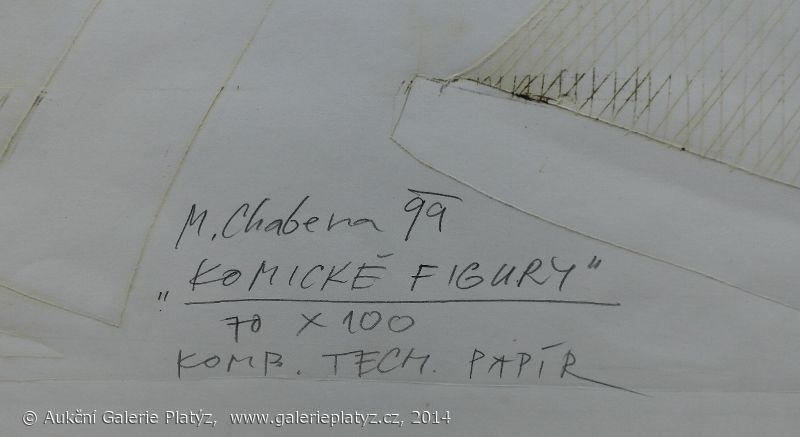 M. Chabera 99
„KOMICKÉ FIGURY“
70 x 100
KOMB. TECH. PAPÍR
© Aukční Galerie Platýz, www.galerieplatyz.cz, 2014